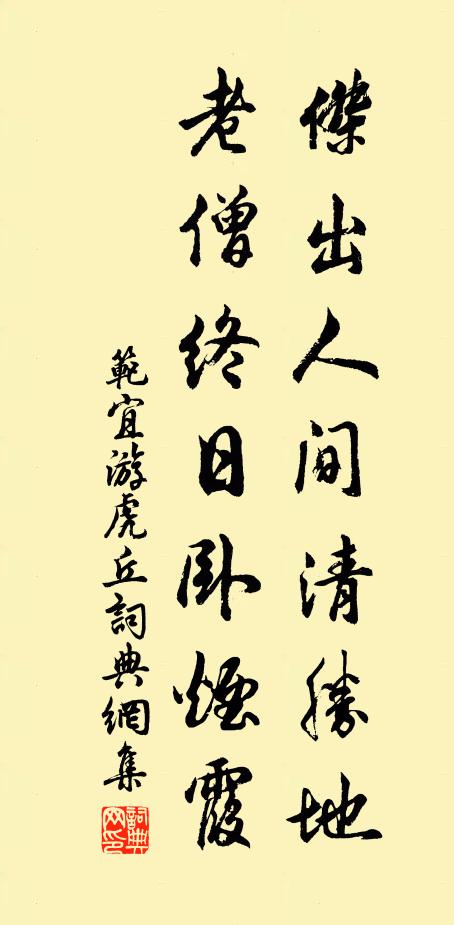 傑出人間清勝地
老僧終日臥煙霞
範宜游虎丘詞典網集
詞典
网印